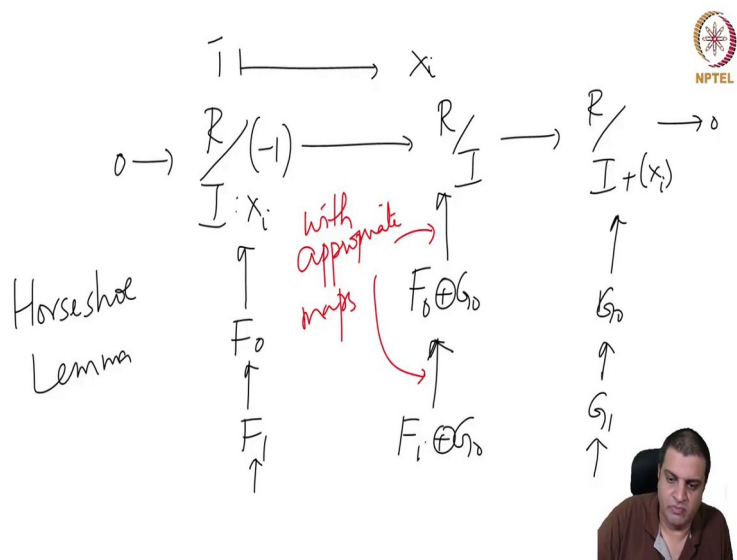 1 ⟼ xi
0 → R/I:xi (-1) → R/I → R/I+(xi) → 0
with
appropriate
maps
Horseshoe
Lemma
F0 F0⊕G0 G0
F1 Fi⊕G0 G1
NPTEL